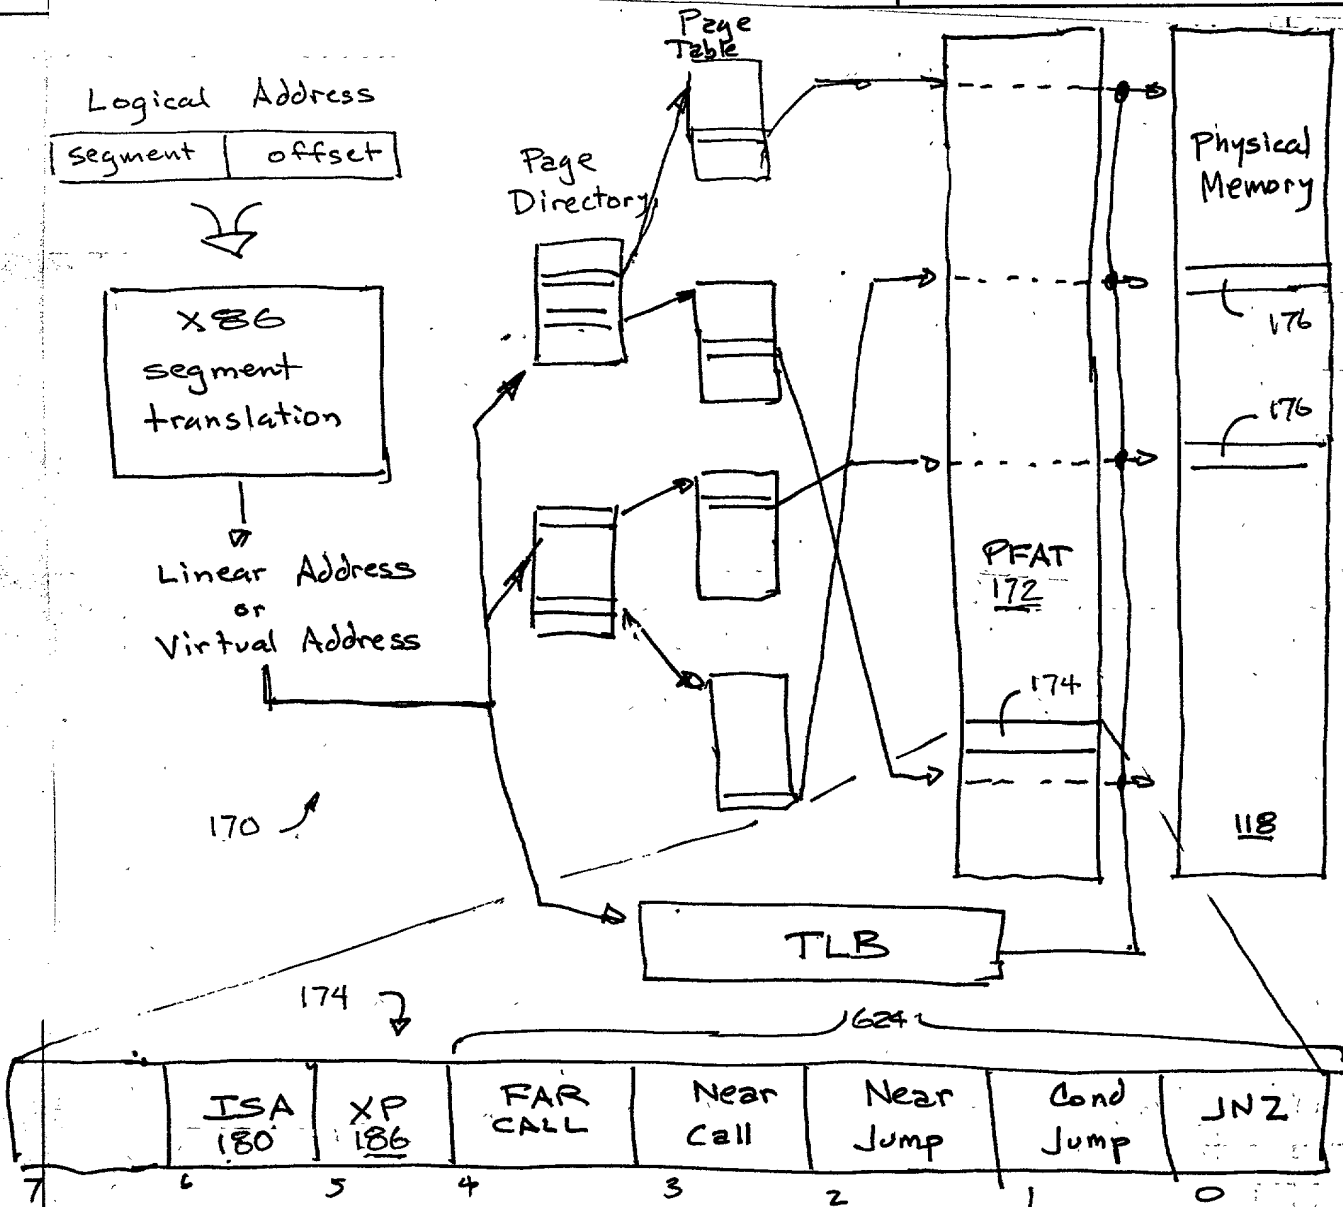 Logical Address
segment offset
X86
segment
translation
Linear Address
or
Virtual Address
170
Page
Directory
Page
Table
PFAT
172
174
Physical
Memory
176
176
118
TLB
174
624
ISA
180
XP
186
FAR
CALL
Near
Call
Near
Jump
Cond
Jump
JNZ
7 6 5 4 3 2 1 0